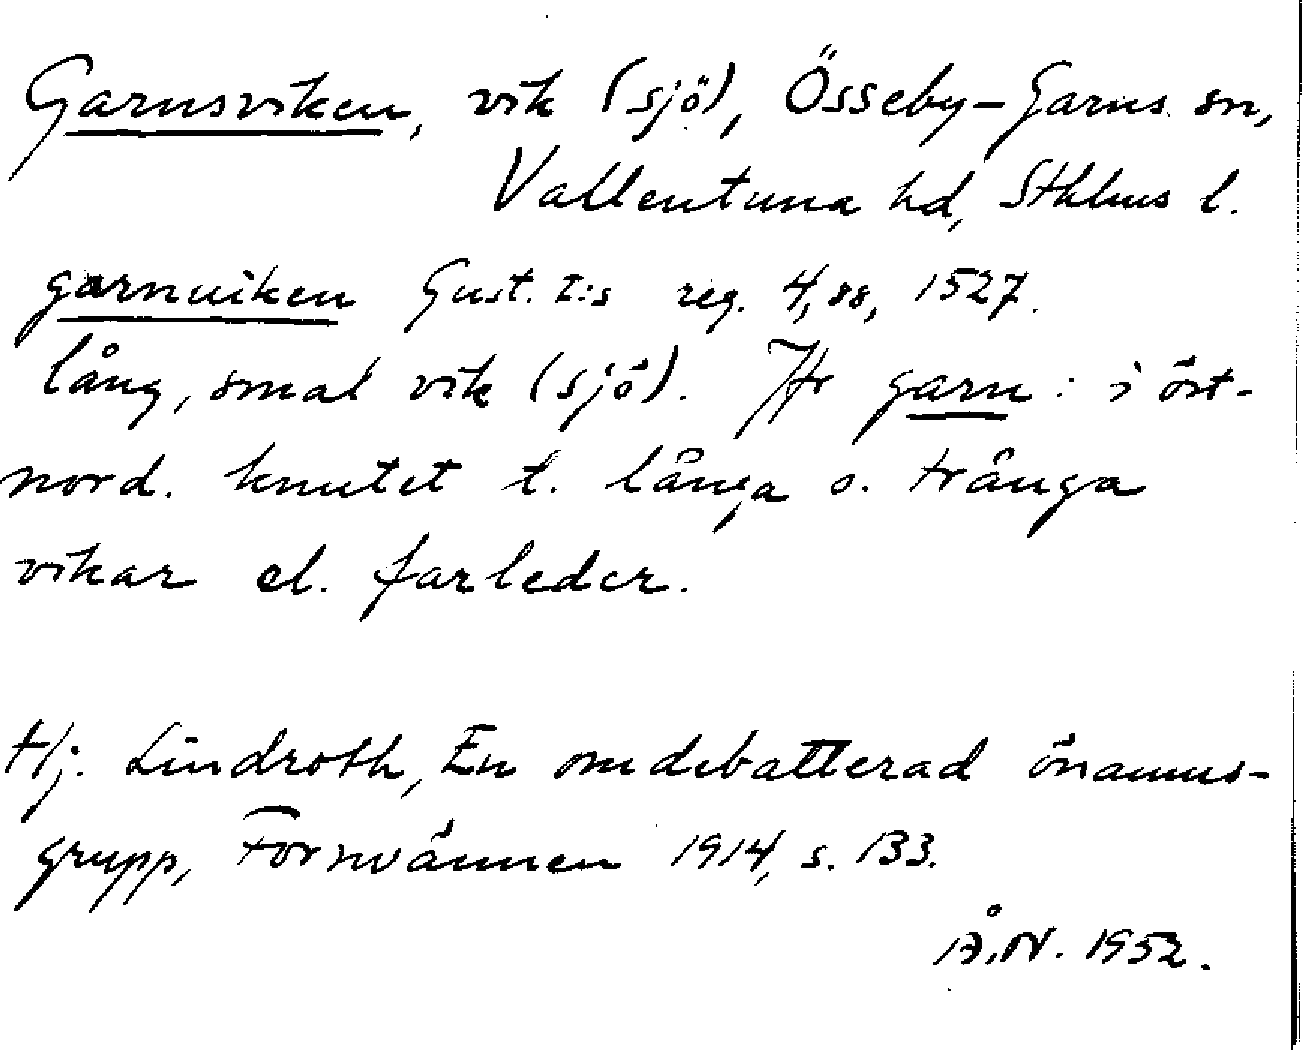 Garnsviken, vik (sjö), Össeby-Garns sn,
Vallentuna hd, Sthlms l.
garnuiken Gust. I:s reg. 4, 88, 1527.
lång, smal vik (sjö). Jfr garn : i öst-
nord. knutet t. långa o. trånga
vikar el. farleder.
Hj. Lindroth, En omdebatterad önamns-
grupp, Fornvännen 1914, s. 133.
Å.N. 1952.